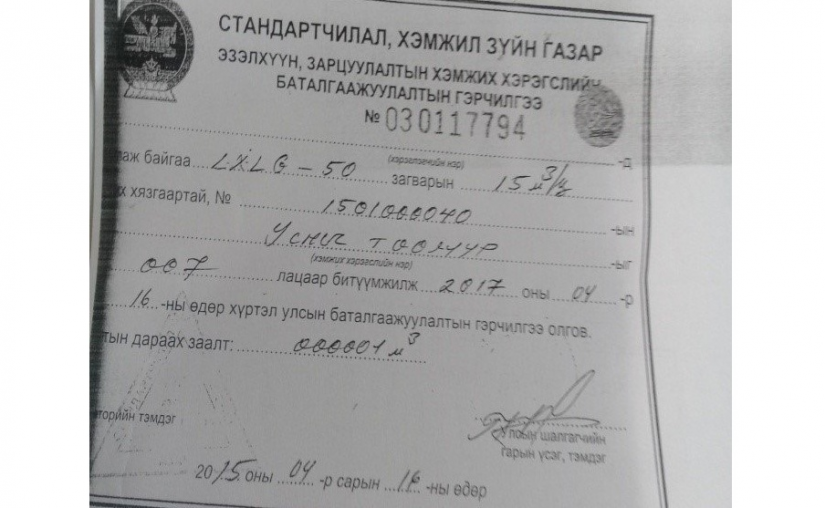 СТАНДАРТЧИЛАЛ, ХЭМЖИЛ ЗҮЙН ГАЗАР
ЭЗЭЛХҮҮН, ЗАРЦУУЛАЛТЫН ХЭМЖИХ ХЭРЭГСЛИЙН
БАТАЛГААЖУУЛАЛТЫН ГЭРЧИЛГЭЭ
№ 030117794
-д
(хэрэглэгчийн нэр)
байгаа LXLG-50 загварын 15 м³/ц
хязгаартай, № 1501000040 -ын
Усны тоолуур -ыг
(хэмжих хэрэгслийн нэр)
007 лацаар битүүмжилж 2017 оны 04 -р
16 -ны өдөр хүртэл улсын баталгаажуулалтын гэрчилгээ олгов.
дараах заалт: 000001 м³
тэмдэг
Улсын шалгагчийн
гарын үсэг, тэмдэг
2015 оны 04 -р сарын 16 -ны өдөр